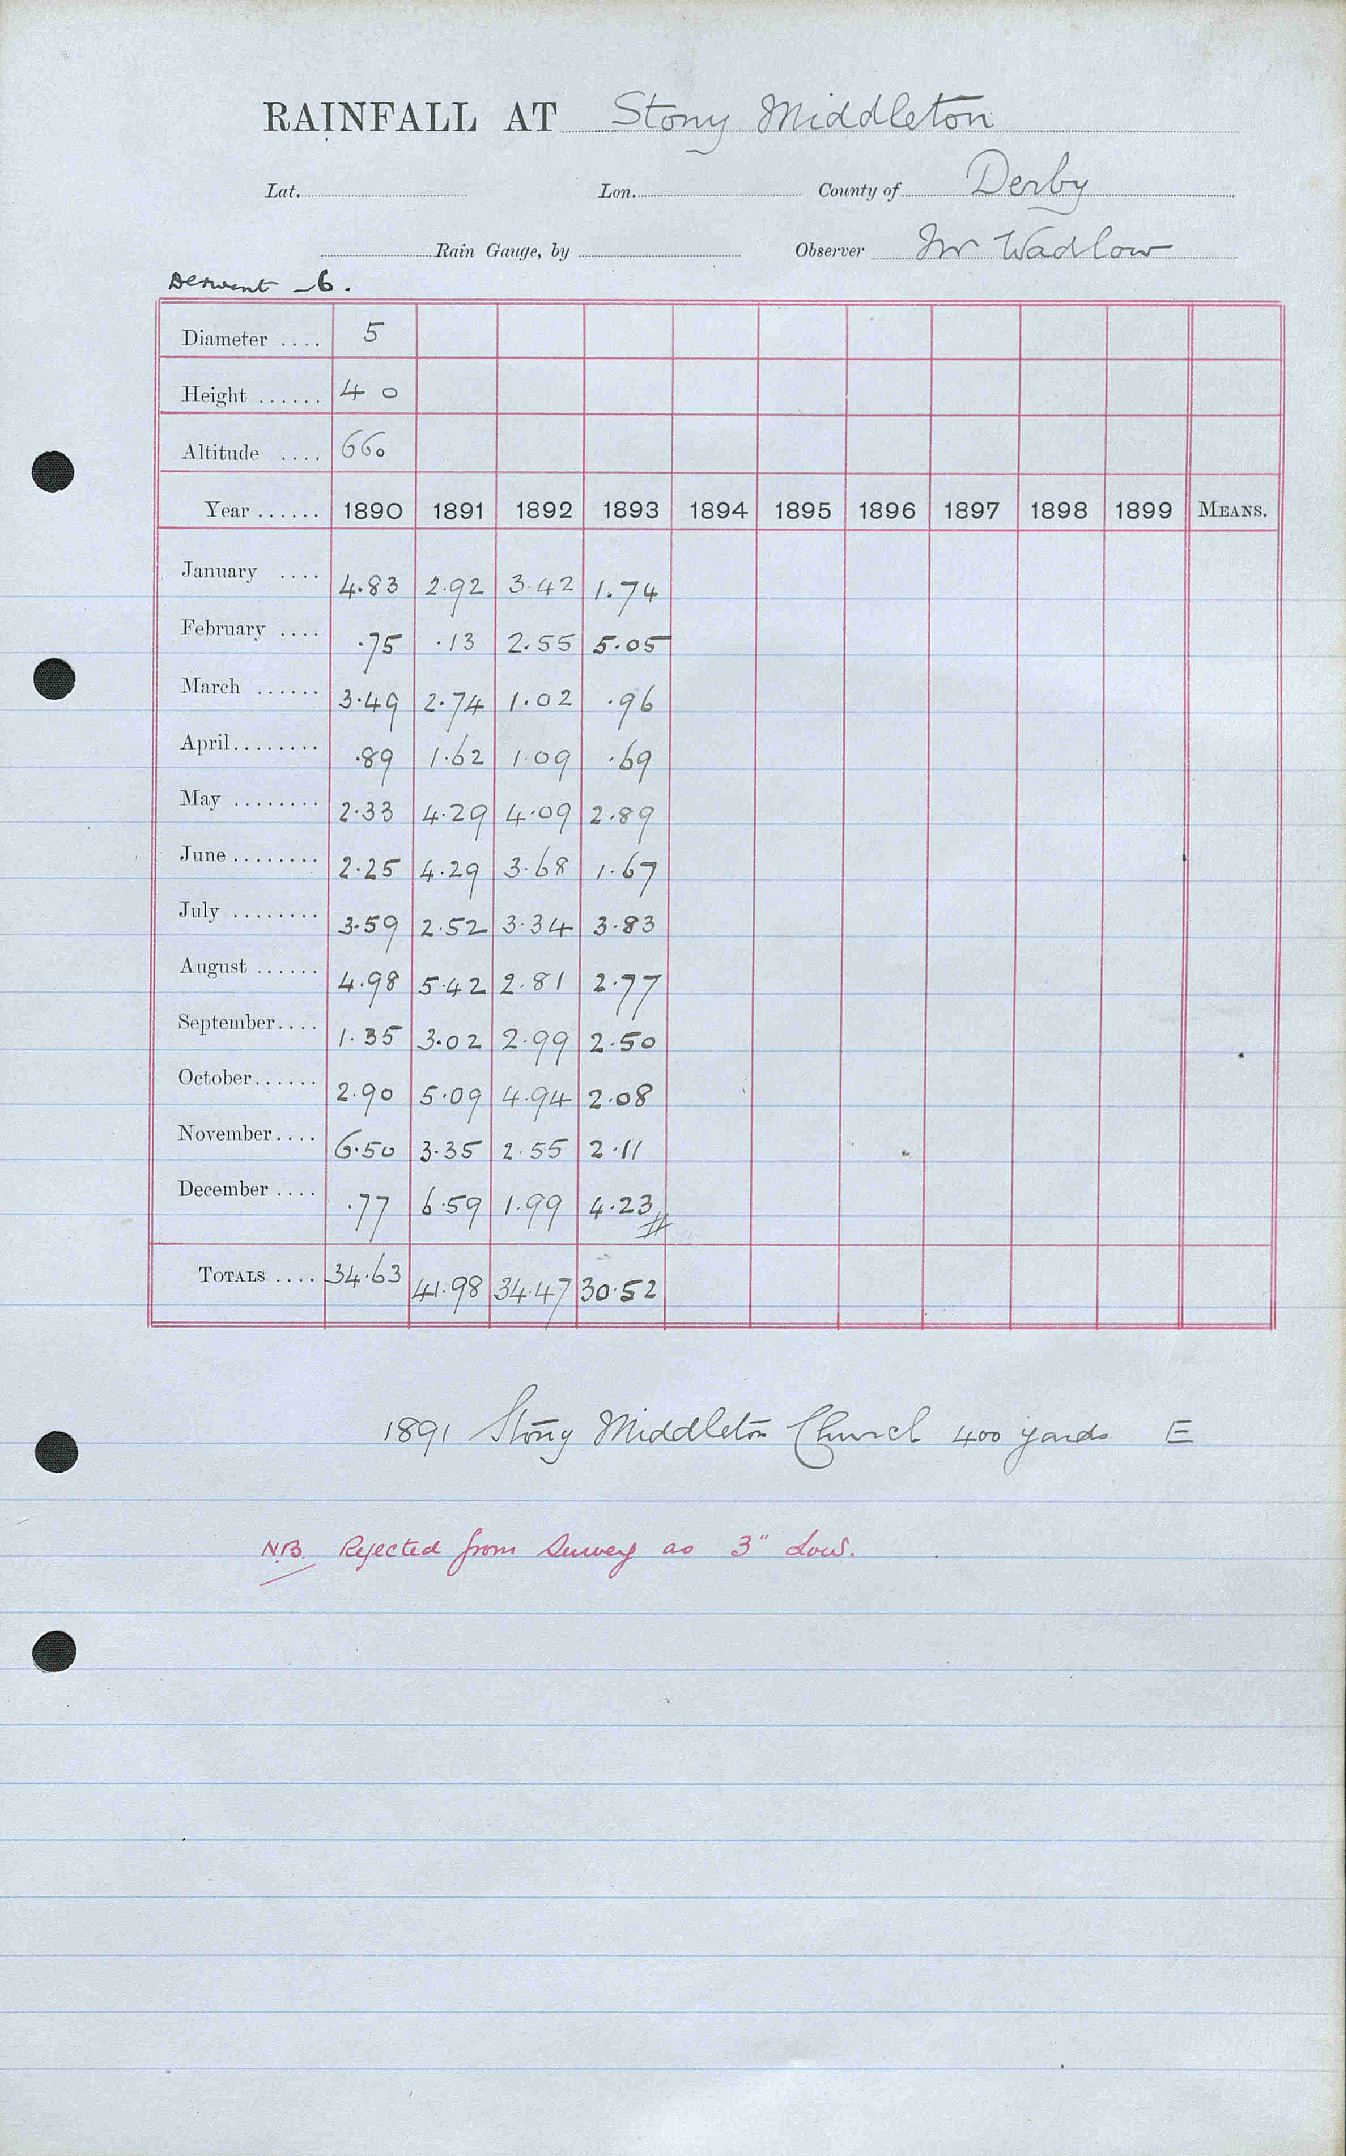 RAINFALL AT Stony Middleton
Lat. Lon. County of Derby
Rain Gauge, by Observer Mr Wadlow
Derwent - 6.
Diameter .... 5
Height ...... 4 0
Altitude .... 660
Year ...... 1890 1891 1892 1893 1894 1895 1896 1897 1898 1899 MEANS.
January .... 4.83 2.92 3.42 1.74
February .... .75 .13 2.55 5.05
March ...... 3.49 2.74 1.02 .96
April ........ .89 1.62 1.09 .69
May ........ 2.33 4.29 4.09 2.89
June ........ 2.25 4.29 3.68 1.67
July ........ 3.59 2.52 3.34 3.83
August ...... 4.98 5.42 2.81 2.77
September.... 1.35 3.02 2.99 2.50
October...... 2.90 5.09 4.94 2.08
November.... 6.50 3.35 2.55 2.11
December .... .77 6.59 1.99 4.23 //
TOTALS .... 34.63 41.98 34.47 30.52
1891 Stony Middleton Church 400 yards E
N.B. Rejected from Survey as 3" Low.